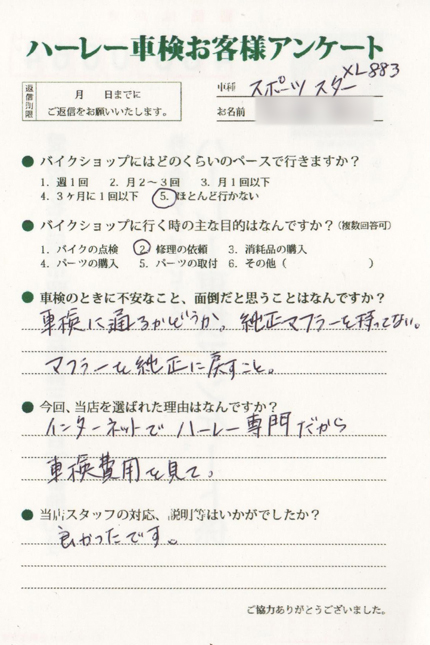 ハーレー車検お客様アンケート
返信期限
月　日までに
ご返信をお願いいたします。
車種 スポーツスター XL883
お名前
● バイクショップにはどのくらいのペースで行きますか？
1. 週1回　2. 月2～3回　3. 月1回以下
4. 3ヶ月に1回以下　5. ほとんど行かない
● バイクショップに行く時の主な目的はなんですか？(複数回答可)
1. バイクの点検　2. 修理の依頼　3. 消耗品の購入
4. パーツの購入　5. パーツの取付　6. その他（　　　　　　）
● 車検のときに不安なこと、面倒だと思うことはなんですか？
車検に通るかどうか。純正マフラーを持ってない。
マフラーを純正に戻すこと。
● 今回、当店を選ばれた理由はなんですか？
インターネットでハーレー専門だから
車検費用を見て。
● 当店スタッフの対応、説明等はいかがでしたか？
良かったです。
ご協力ありがとうございました。